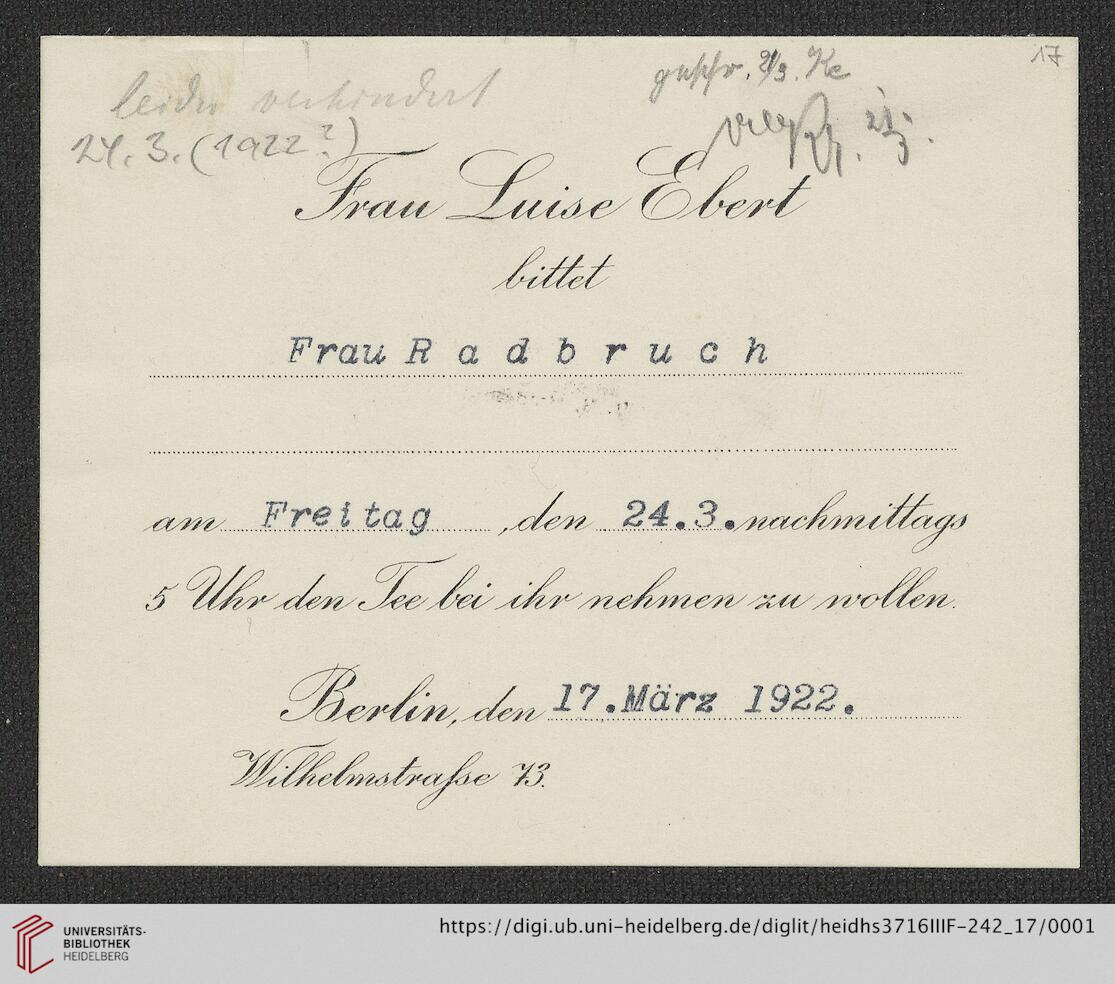 17
leider verhindert
24. 3. (1922?)
Frau Luise Ebert
bittet
Frau R a d b r u c h
am Freitag, den 24.3. nachmittags
5 Uhr den Tee bei ihr nehmen zu wollen.
Berlin, den 17. März 1922.
Wilhelmstraße 73.
UNIVERSITÄTS-
BIBLIOTHEK
HEIDELBERG
https://digi.ub.uni-heidelberg.de/diglit/heidhs3716IIIF-242_17/0001